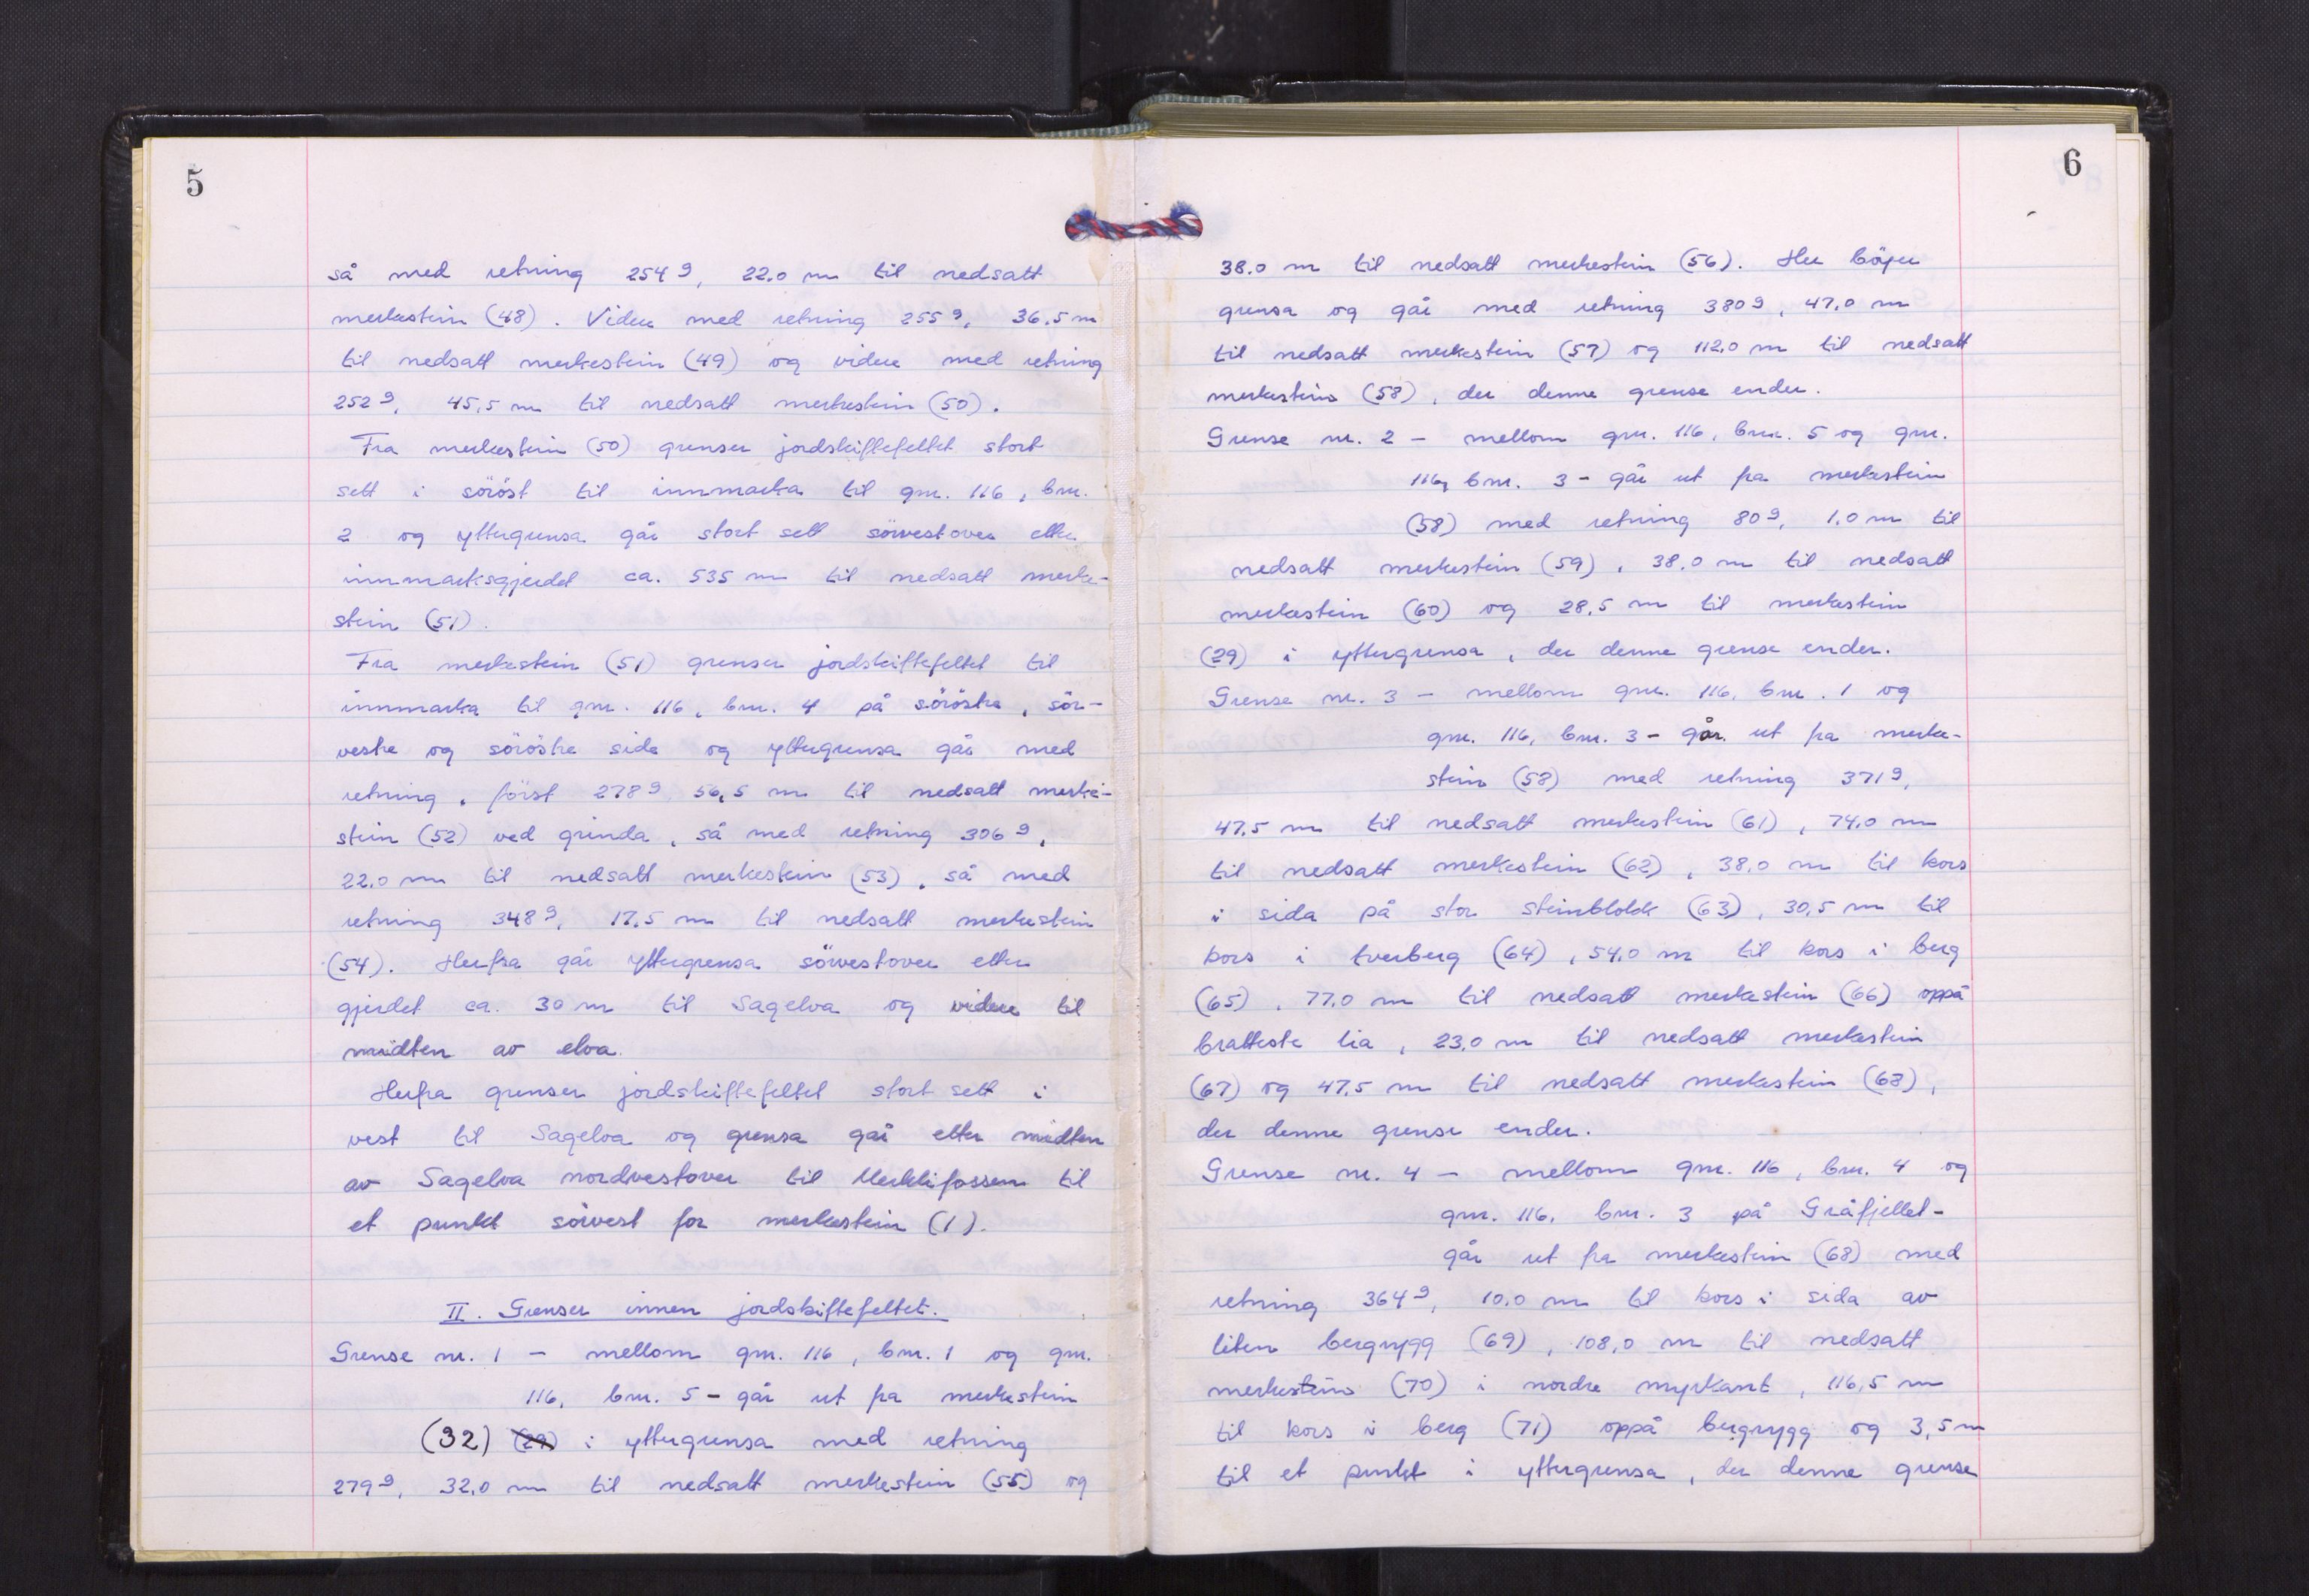 5
så med retning 254ᵍ, 22.0 m til nedsatt
merkestein (48). Videre med retning 255ᵍ, 36.5 m
til nedsatt merkestein (49) og videre med retning
252ᵍ, 45,5 m til nedsatt merkestein (50).
Fra merkestein (50) grenser jordskiftefeltet stort
sett i söröst til innmarka til gnr. 116, bnr.
2 og yttergrensa går stort sett sörvestover etter
innmarksgjerdet ca. 535 m til nedsatt merke-
stein (51).
Fra merkestein (51) grenser jordskiftefeltet til
innmarka til gnr. 116, bnr. 4 på söröstre, sör-
vestre og söröstre side og yttergrensa går med
retning, först 278ᵍ 56,5 m til nedsatt merke-
stein (52) ved grinda, så med retning 306ᵍ,
22.0 m til nedsatt merkestein (53), så med
retning 348ᵍ, 17.5 m til nedsatt merkestein
(54). Herfra går yttergrensa sörvestover etter
gjerdet ca. 30 m til Sagelva og videre til
midten av elva.
Herfra grenser jordskiftefeltet stort sett i
vest til Sagelva og grensa går etter midten
av Sagelva nordvestover til Merklifossen til
et punkt sörvest for merkestein (1).
II. Grenser innen jordskiftefeltet.
Grense nr. 1 - mellom gnr. 116, bnr. 1 og gnr.
116, bnr. 5 - går ut fra merkestein
(32) (29) i yttergrensa med retning
279ᵍ, 32,0 m til nedsatt merkestein (55) og
6
38.0 m til nedsatt merkestein (56). Her böyer
grensa og går med retning 380ᵍ, 47,0 m
til nedsatt merkestein (57) og 112,0 m til nedsatt
merkestein (58), der denne grense ender.
Grense nr. 2 - mellom gnr. 116, bnr. 5 og gnr.
116, bnr. 3 - går ut fra merkestein
(58) med retning 80ᵍ, 1.0 m til
nedsatt merkestein (59), 38.0 m til nedsatt
merkestein (60) og 28,5 m til merkestein
(29) i yttergrensa, der denne grense ender.
Grense nr. 3 - mellom gnr. 116, bnr. 1 og
gnr. 116, bnr. 3 - går ut fra merke-
stein (58) med retning 371ᵍ,
47.5 m til nedsatt merkestein (61), 74,0 m
til nedsatt merkestein (62), 38,0 m til kors
i sida på stor steinblokk (63), 30,5 m til
kors i tverberg (64), 54,0 m til kors i berg
(65), 77.0 m til nedsatt merkestein (66) oppå
bratteste lia, 23,0 m til nedsatt merkestein
(67) og 47,5 m til nedsatt merkestein (68),
der denne grense ender.
Grense nr. 4 - mellom gnr. 116, bnr. 4 og
gnr. 116, bnr. 3 på Gråfjellet -
går ut fra merkestein (68) med
retning 364ᵍ, 10.0 m til kors i sida av
liten bergrygg (69), 108,0 m til nedsatt
merkestein (70) i nordre myrkant, 116,5 m
til kors i berg (71) oppå bergrygg og 3,5 m
til et punkt i yttergrensa, der denne grense